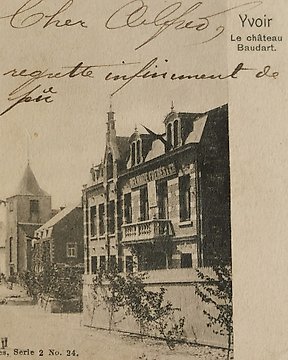 Cher Alfred,
Yvoir
Le château
Baudart.
regrette infiniment de
es, Serie 2 No. 24.